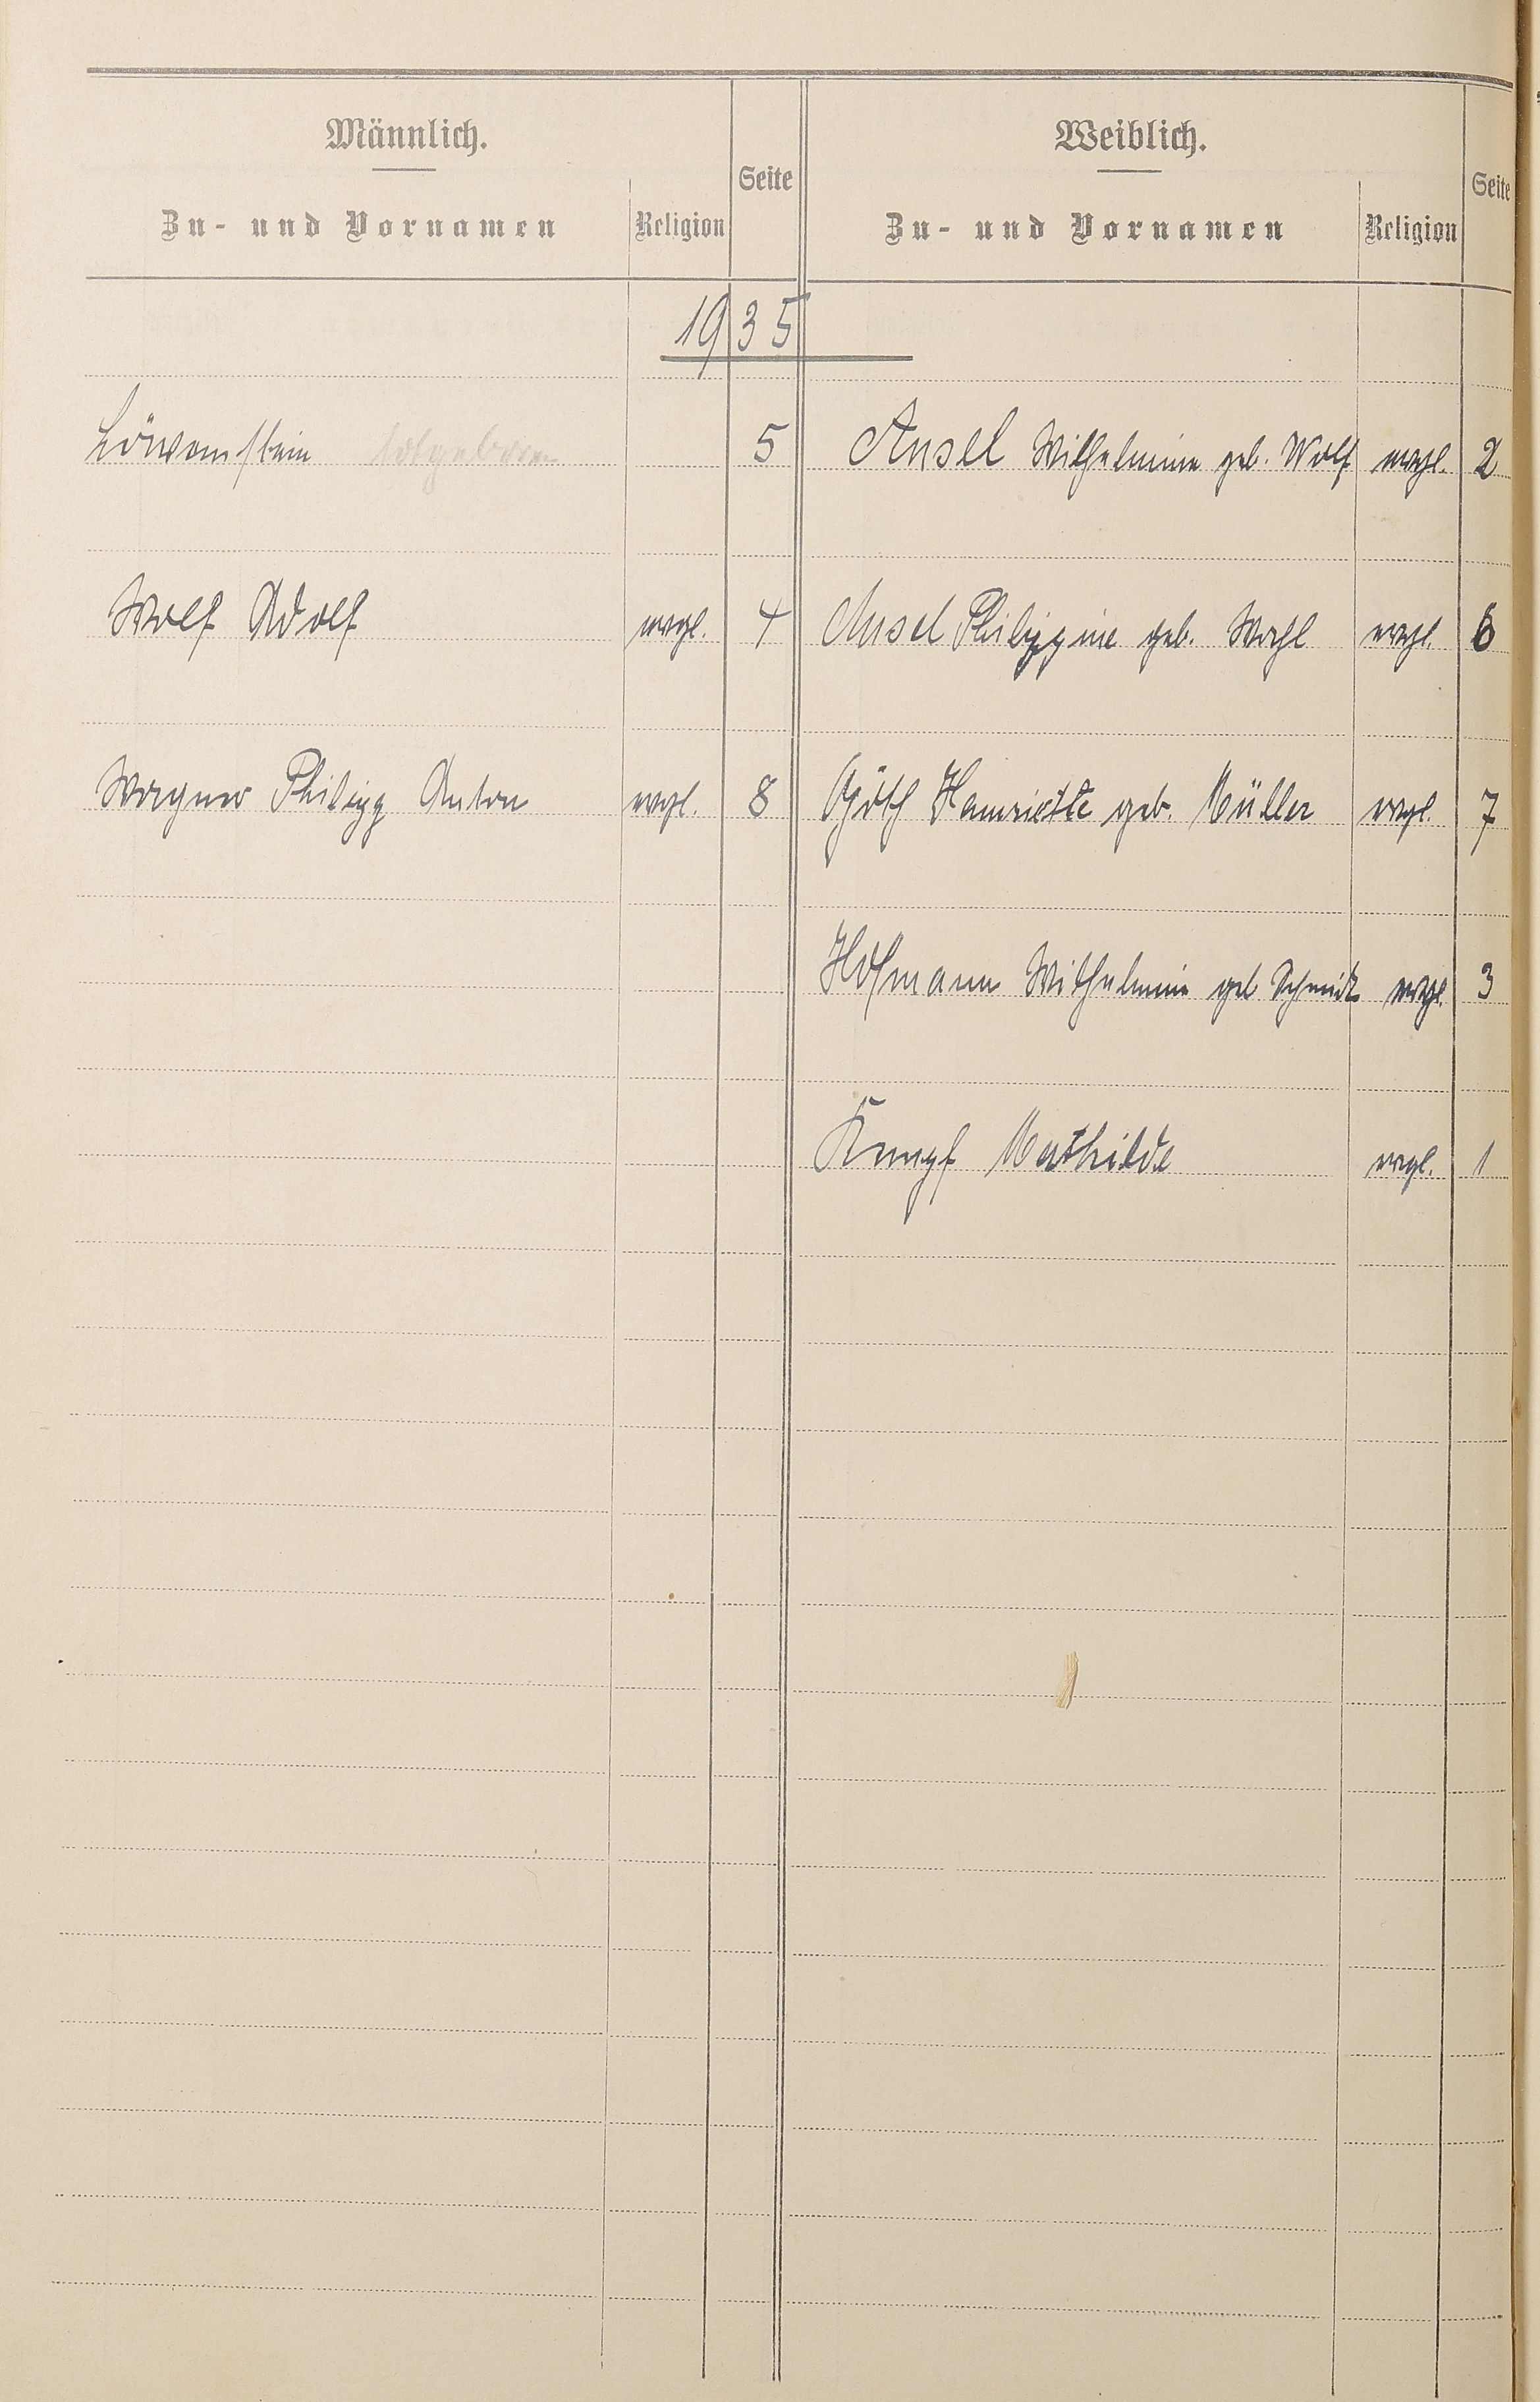 Männlich.
Zu- und Vornamen
Religion
Seite
Weiblich.
Zu- und Vornamen
Religion
Seite
1935
Löwenstein totgeboren 5 Ansel Wilhelmine geb. Wolf evgl. 2
Wolf Adolf evgl. 4 Ansel Philippine geb. Wahl evgl. 6
Wagner Philipp Anton evgl. 8 Güth Henriette geb. Müller evgl. 7
Hofmann Wilhelmine geb Schmidt evgl. 3
Kumpf Mathilde evgl. 1